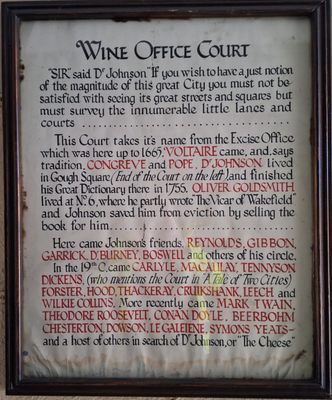 WINE OFFICE COURT
"SIR" said Dr Johnson "If you wish to have a just notion
of the magnitude of this great City you must not be
satisfied with seeing its great streets and squares but
must survey the innumerable little lanes and
courts ..............................
This Court takes it's name from the Excise Office
which was here up to 1665. VOLTAIRE came, and, says
tradition, CONGREVE and POPE, Dr JOHNSON lived
in Gough Square (End of the Court on the left) and finished
his Great Dictionary there in 1755. OLIVER GOLDSMITH
lived at No 6, where he partly wrote "The Vicar of Wakefield"
and Johnson saved him from eviction by selling the
book for him..................
Here came Johnson's friends, REYNOLDS, GIBBON,
GARRICK, Dr BURNEY, BOSWELL and others of his circle.
In the 19th C. came CARLYLE, MACAULAY, TENNYSON
DICKENS, (who mentions the Court in "A Tale of Two Cities)
FORSTER, HOOD, THACKERAY, CRUIKSHANK, LEECH and
WILKIE COLLINS. More recently came MARK TWAIN,
THEODORE ROOSEVELT, CONAN DOYLE, BEERBOHM
CHESTERTON, DOWSON, LE GALEIENE, SYMONS YEATS—
and a host of others in search of Dr Johnson, or "The Cheese"